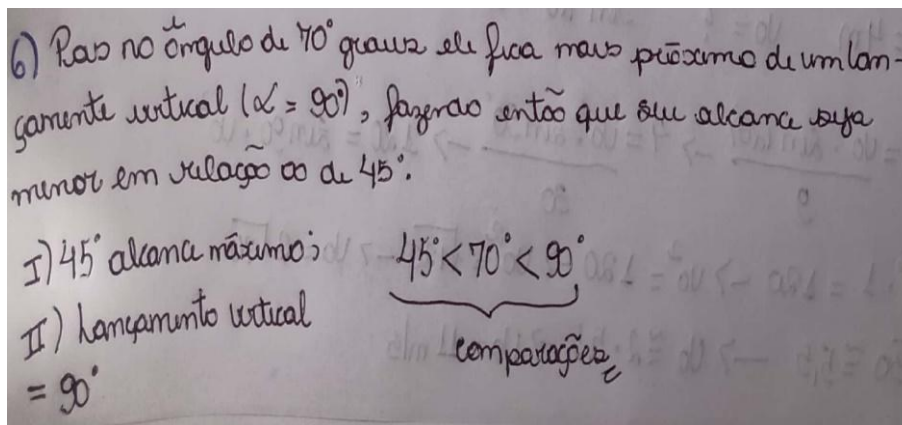 6) Pois no ângulo de 70° graus ele fica mais próximo de um lan-
çamente vertical (α = 90°), fazendo então que seu alcance seja
menor em relação ao de 45°.
I) 45° alcance máximo;
45° < 70° < 90°
II) Lançamento vertical
= 90°
comparações